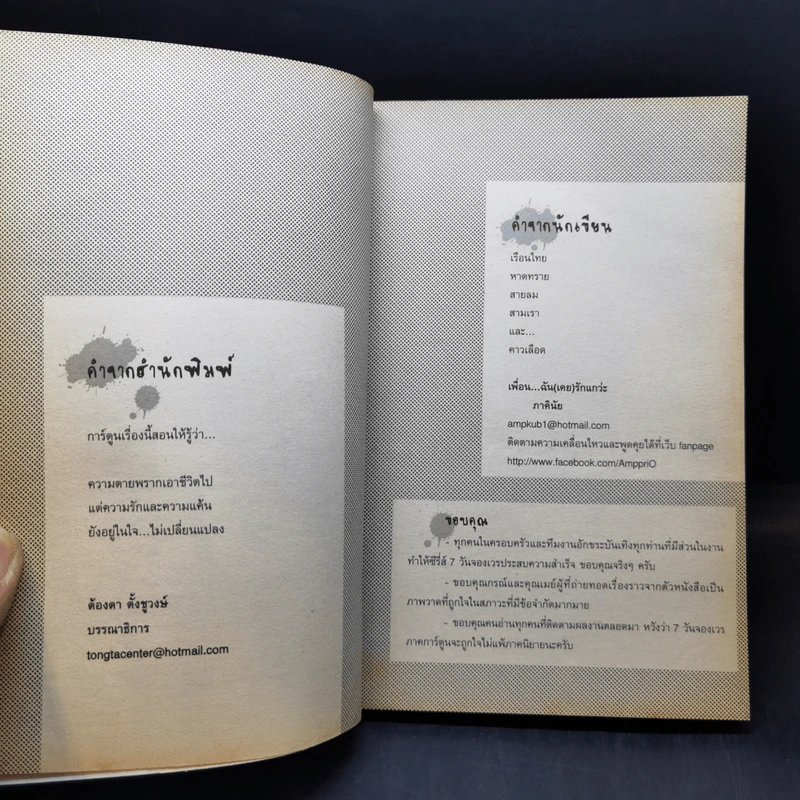 คำจากสำนักพิมพ์
การ์ตูนเรื่องนี้สอนให้รู้ว่า...
ความตายพรากเอาชีวิตไป
แต่ความรักและความแค้น
ยังอยู่ในใจ...ไม่เปลี่ยนแปลง
ต้องตา ตั้งชูวงษ์
บรรณาธิการ
tongtacenter@hotmail.com
คำจากนักเขียน
เรือนไทย
หาดทราย
สายลม
สามเรา
และ...
คาวเลือด
เพื่อน...ฉัน(เคย)รักแกว่ะ
ภาคินัย
ampkub1@hotmail.com
ติดตามความเคลื่อนไหวและพูดคุยได้ที่เว็บ fanpage
http://www.facebook.com/AmppriO
ขอบคุณ
- ทุกคนในครอบครัวและทีมงานอักขระบันเทิงทุกท่านที่มีส่วนในงาน
ทำให้ซีรี่ส์ 7 วันจองเวรประสบความสำเร็จ ขอบคุณจริงๆ ครับ
- ขอบคุณกรณ์และคุณเมย์ผู้ที่ถ่ายทอดเรื่องราวจากตัวหนังสือเป็น
ภาพวาดที่ถูกใจในสภาวะที่มีข้อจำกัดมากมาย
- ขอบคุณคนอ่านทุกคนที่ติดตามผลงานตลอดมา หวังว่า 7 วันจองเวร
ภาคการ์ตูนจะถูกใจไม่แพ้ภาคนิยายนะครับ